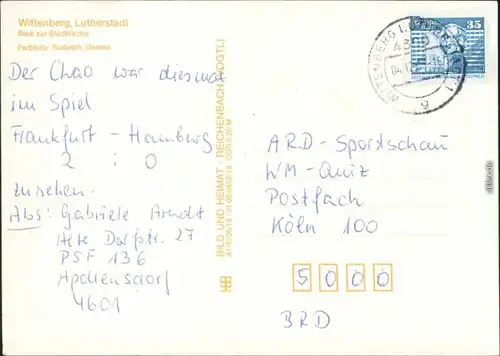 Wittenberg, Lutherstadt
Blick zur Stadtkirche
Farbfoto: Rudolph, Dessau
Der Chao war diesmal
im Spiel
Frankfurt - Hamburg
2 : 0
zusehen.
Abs: Gabriele Arndt
Alte Dorfstr. 27
PSF 136
Apollensdorf
4601
BILD UND HEIMAT · REICHENBACH (VOGTL)
35
WITTENBERG LUTHERSTADT 1
g
ARD - Sportschau
WM - Quiz
Postfach
Köln 100
5000
BRD